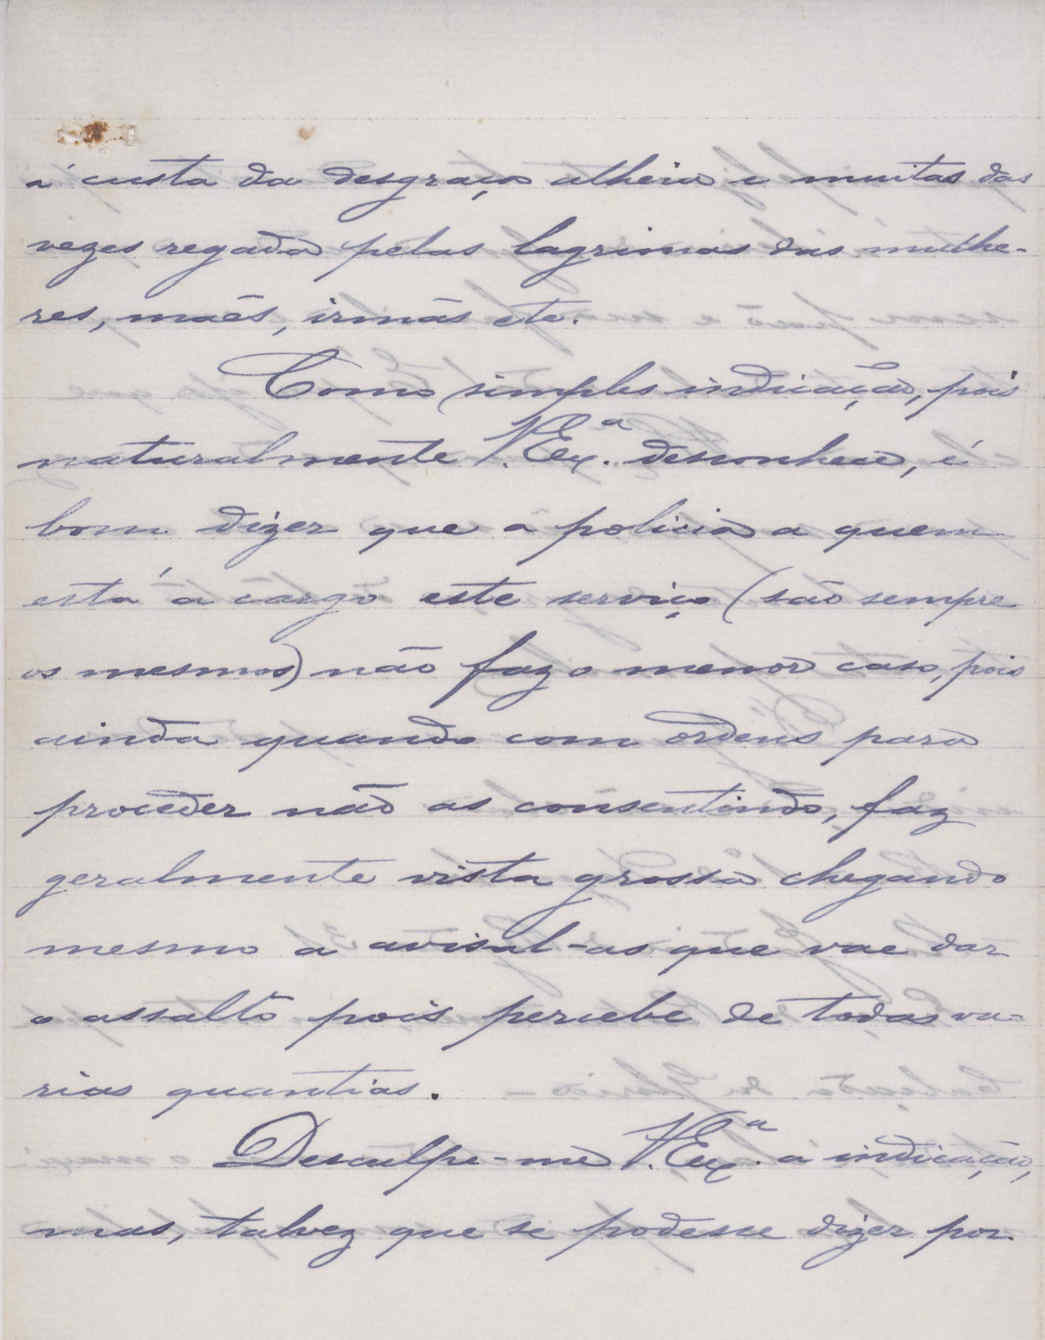 á custa da desgraça alheia e muitas das
vezes regada pelas lagrimas das mulhe-
res, maẽs, irmãs etc.
Como simples indicação, pois
naturalmente V. Exª. desconhece, é
bom dizer que a policia a quem
está á cargo este serviço (são sempre
os mesmos) não faz o menor caso, pois
ainda quando com ordens para
proceder não as consentindo, faz
geralmente vista grossa chegando
mesmo a avisal-as que vae dar
o assalto pois percebe de todas va-
rias quantias.
Desculpe-me V. Exª. a indicação,
mas, talvez que se podesse dizer por